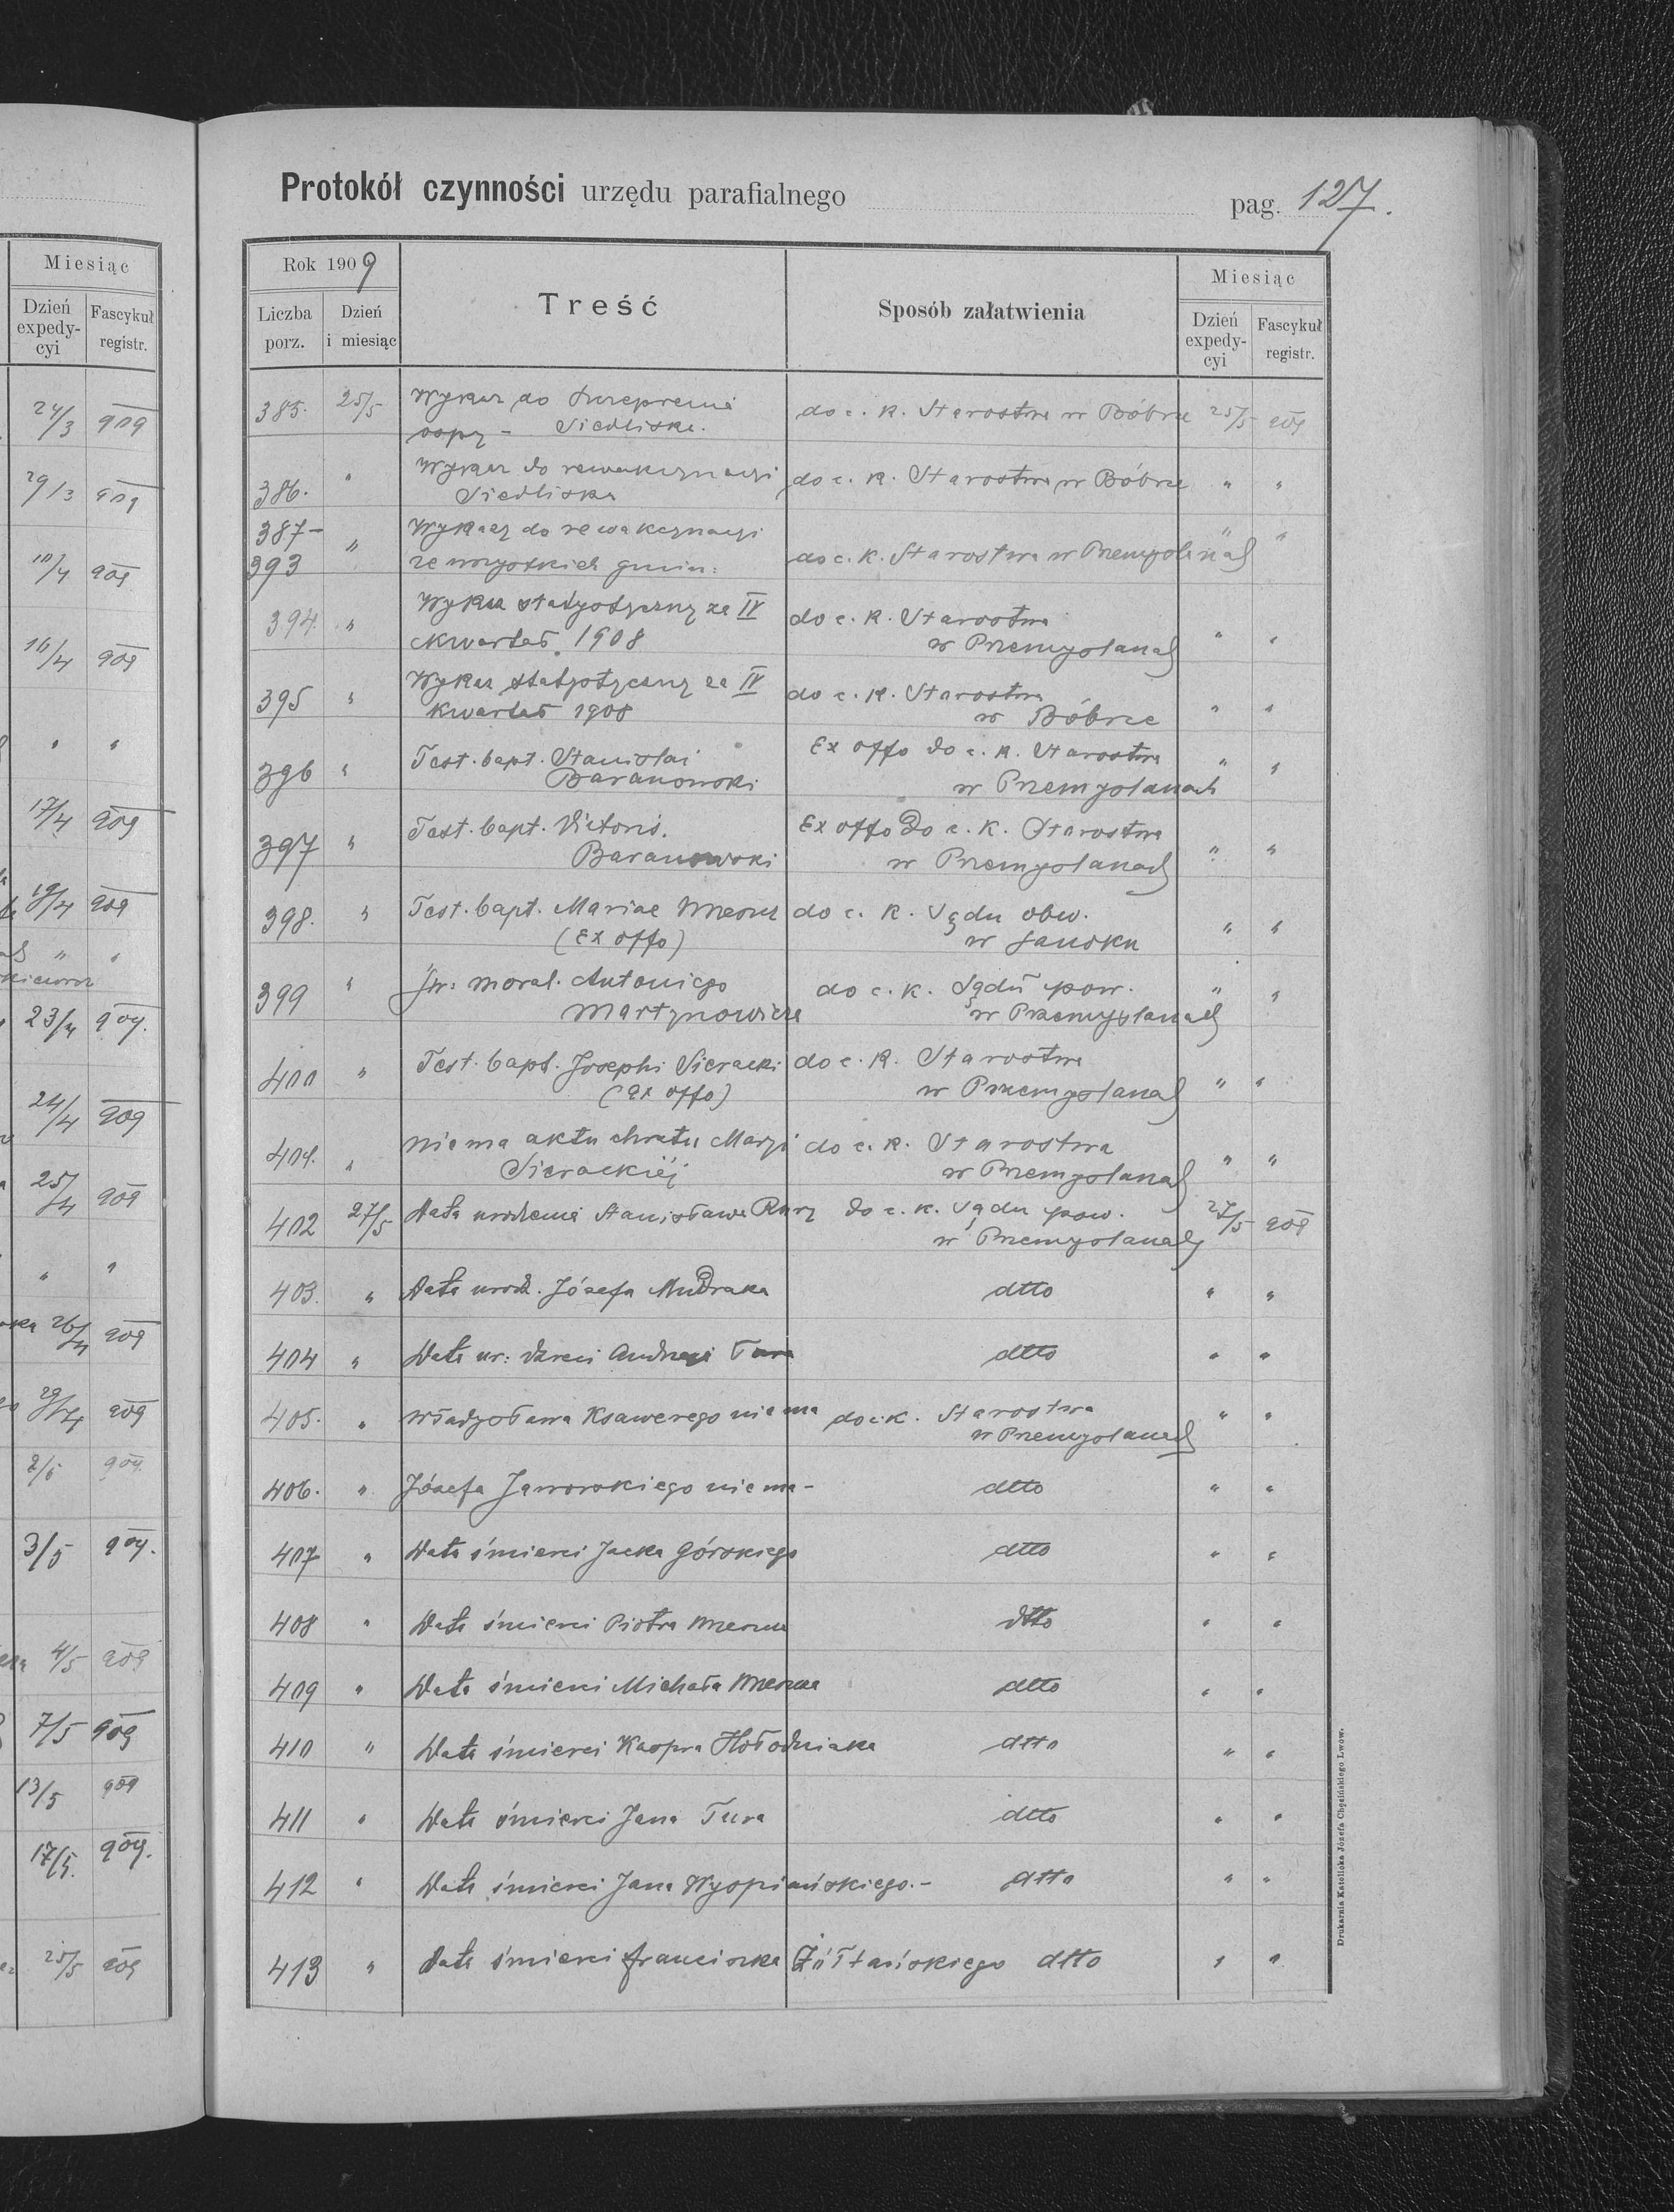 Miesiąc
Dzień expedycyi Fascykuł registr.
24/3 909
29/3 909
10/4 909
16/4 909
" "
17/4 909
19/4 909
" "
23/4 909.
24/4 909
25/4 909
" "
26/4 909
29/4 909
2/5 909.
3/5 909.
4/5 909
7/5 909
13/5 909
17/5. 909.
25/5 909
Protokół czynności urzędu parafialnego pag. 127.
Rok 1909 Treść Sposób załatwienia Miesiąc
Liczba porz. Dzień i miesiąc Dzień expedycyi Fascykuł registr.
385. 25/5 Wykaz do szczepienia do c. k. Starostwa w Bóbrce 25/5 909
ospy - Siedliska.
386. " Wykaz do rewakcynacyi do c. k. Starostwa w Bóbrce " "
Siedliska
387- " Wykazy do rewakcynacyi " "
393 ze wszystkich gmin: do c. k. Starostwa w Przemyślanach
394. " Wykaz statystyczny za IV do c. k. Starostwa
kwartał 1908 w Przemyślanach " "
395 " Wykaz statystyczny za IV do c. k. Starostwa
kwartał 1908 w Bóbrce " "
396 " Test. bapt. Stanislai Ex offo do c. k. Starostwa " "
Baranowski w Przemyślanach
397 " Test. bapt. Victoris. Ex offo do c. k. Starostwa
Baranowski w Przemyślanach " "
398. " Test. bapt. Mariae do c. k. Sądu obw.
(Ex offo) w Sanoku " "
399 " Św: moral. Antoniego do c. k. Sądu pow. " "
Martynowicza w Przemyślanach
400 " Test. bapt. Josephi Sieracki do c. k. Starostwa
(ex offo) w Przemyślanach " "
401. " niema aktu chrztu Maryi do c. k. Starostwa
Sierackiej w Przemyślanach " "
402 27/5 Data urodzenia Stanisława do c. k. Sądu pow. 27/5 909
w Przemyślanach
403. " Data urodz. Józefa Mudraka dtto " "
404 " Data ur: dzieci Andrzeja Tura dtto " "
405. " Władysława Ksawerego niema do c. k. Starostwa " "
w Przemyślanach
406. " Józefa Jaworskiego niema - dtto " "
407 " Data śmierci Jacka Górskiego dtto " "
408 " Data śmierci Piotra dtto " "
409 " Data śmierci Michała dtto " "
410 " Data śmierci Kaspra Hołodniaka dtto " "
411 " Data śmierci Jana Tura dtto " "
412 " Data śmierci Jana Wyspiańskiego. - dtto " "
413 " Data śmierci Franciszka Żółtańskiego dtto " "
Drukarnia Katolicka Józefa Chęcińskiego Lwów.